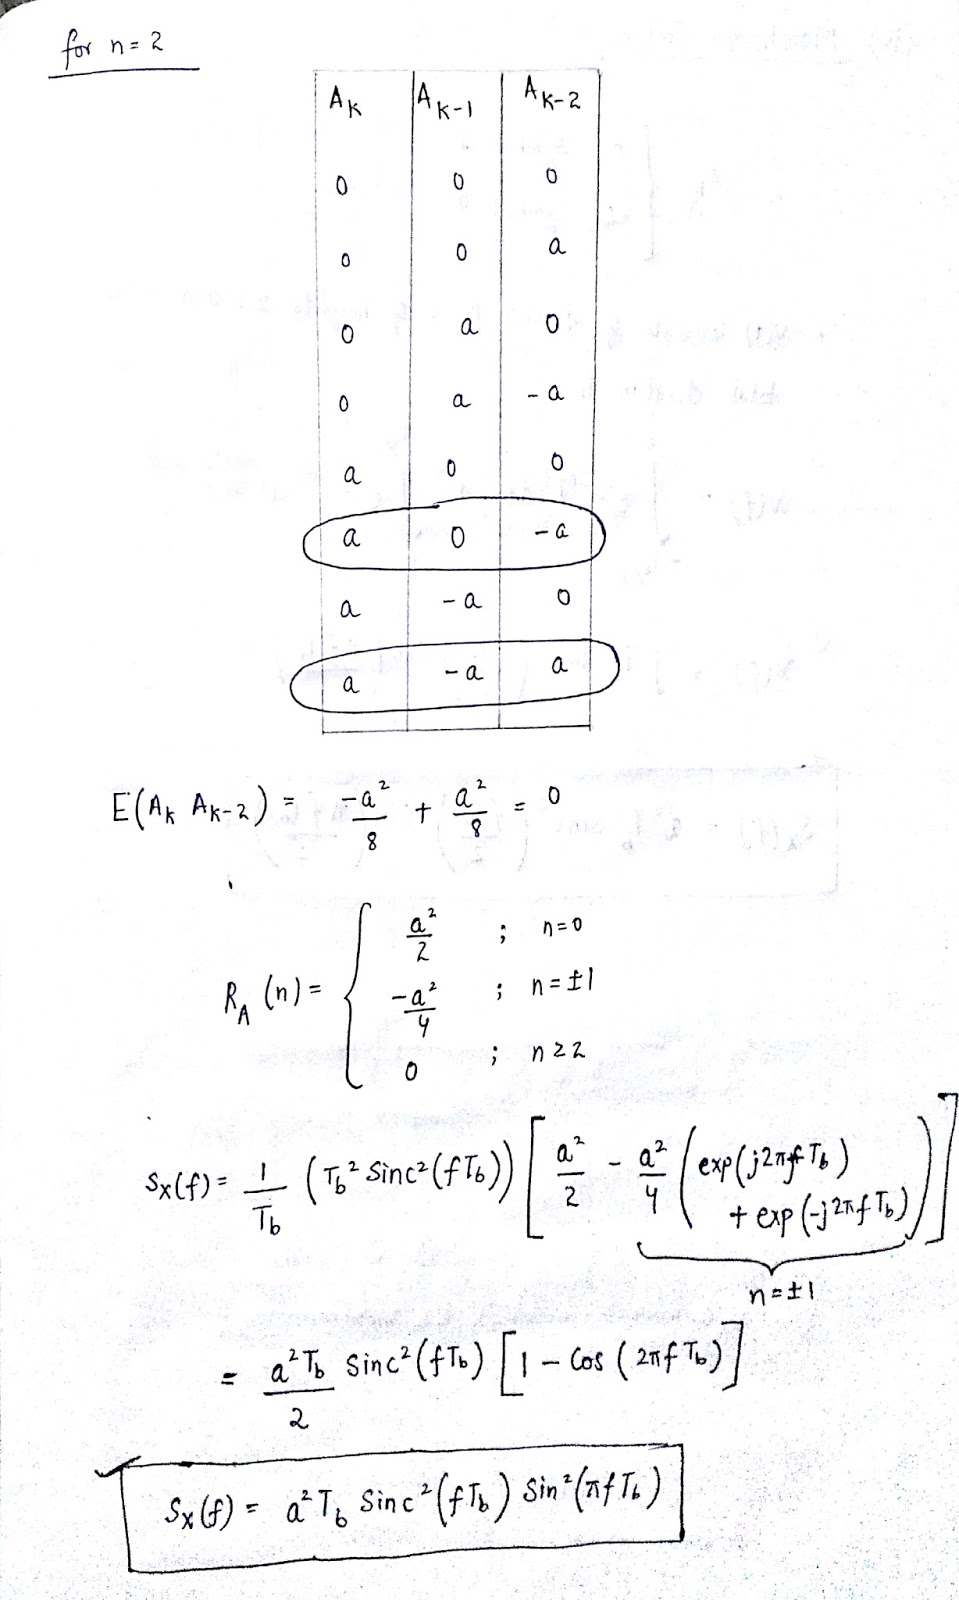 for n=2
A_K A_K-1 A_K-2
0 0 0
0 0 a
0 a 0
0 a -a
a 0 0
a 0 -a
a -a 0
a -a a
E(A_K A_K-2) = -a²/8 + a²/8 = 0
R_A (n) = { a²/2 ; n=0
-a²/4 ; n=±1
0 ; n≥2
S_X(f) = 1/T_b (T_b² Sinc²(fT_b)) [ a²/2 - a²/4 ( exp(j2πfT_b)
+ exp(-j2πfT_b) ) ]
n=±1
= a²T_b/2 Sinc²(fT_b) [1 - Cos (2πfT_b)]
S_X(f) = a²T_b Sinc²(fT_b) Sin²(πfT_b)